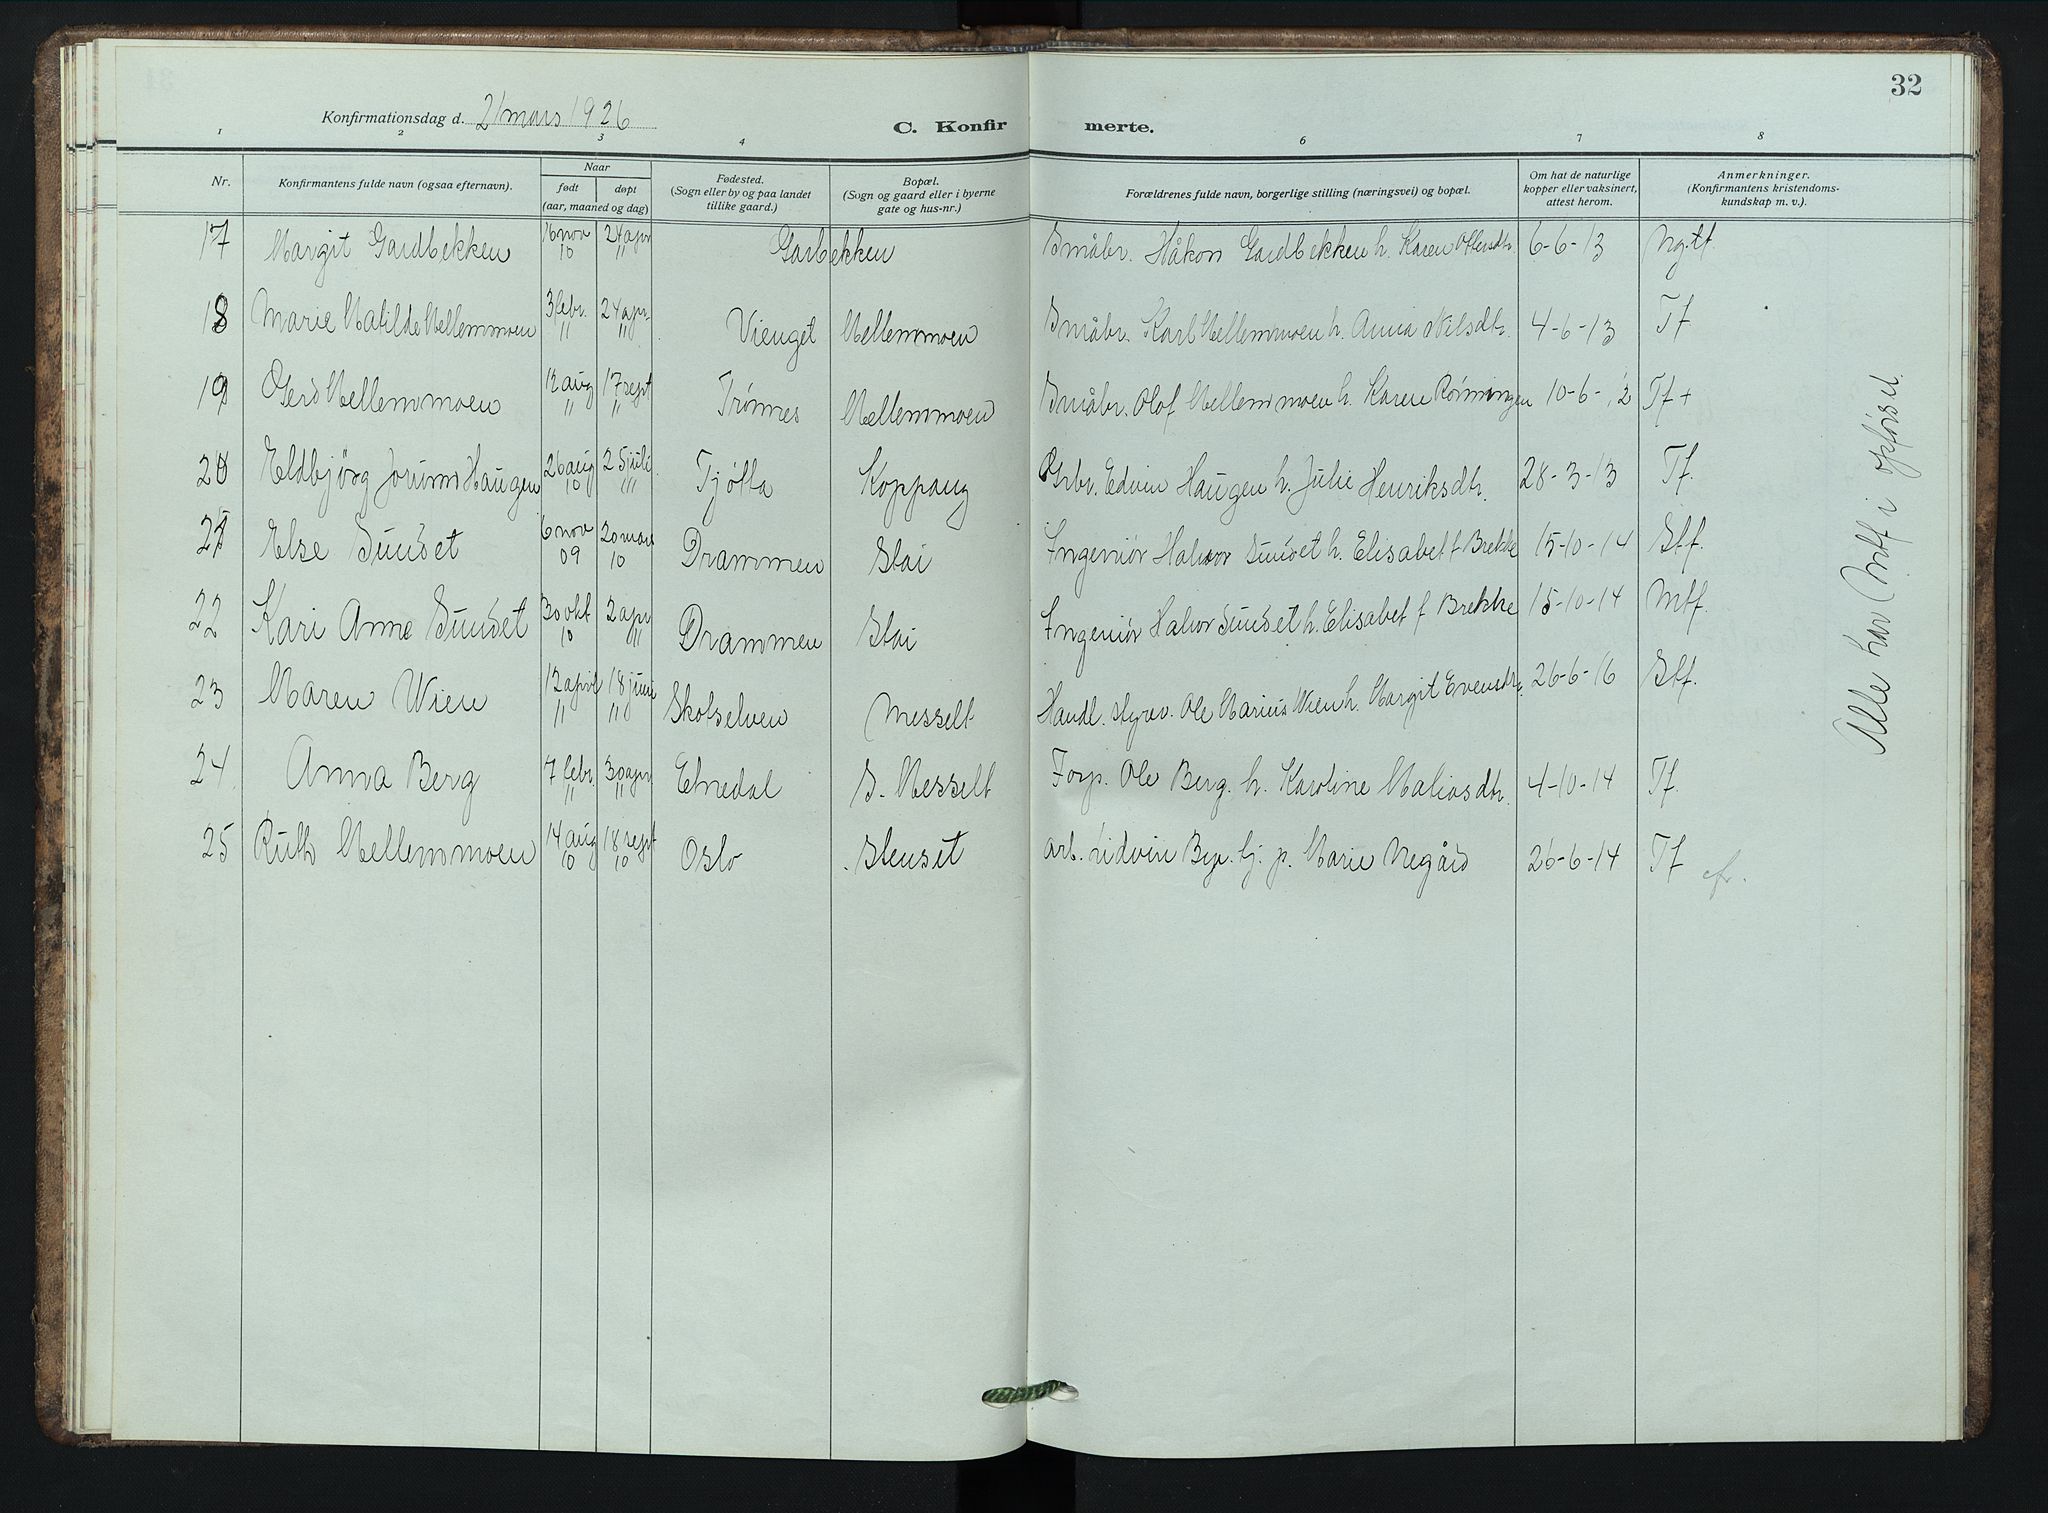 32
Konfirmationsdag d. 21 mars 1926
C. Konfirmerte.
1 2 3 4 6 7 8
Nr. Konfirmantens fulde navn (ogsaa efternavn). Naar født døpt (aar, maaned og dag) Fødested. (Sogn eller by og paa landet tillike gaard.) Bopæl. (Sogn og gaard eller i byerne gate og hus-nr.) Forældrenes fulde navn, borgerlige stilling (næringsvei) og bopæl. Om hat de naturlige kopper eller vaksinert, attest herom. Anmerkninger. (Konfirmantens kristendomskundskap m. v.).
17 Margit Gardbekken 16 nov 10 24 apr " Garbekken Småbr. Håkon Gardbekken h. Karen Ottersdtr. 6-6-13 Ng.tf
18 Marie Matilde Mellemmoen 3 febr. " 24 apr. " Vienget Mellemmoen Småbr. Karl Mellemmoen h. Anna Nilsdtr. 4-6-13 Tf
19 Gerd Mellemmoen 12 aug " 17 sept " Trønnes Mellemmoen Småbr. Olof Mellemmoen h. Karen Rønningen 10-6-12 Tf +
20 Eldbjørg Jorunn Haugen 26 aug 10 25 juli " Tjøtta Koppang Grbr. Edvin Haugen h. Julie Henriksdtr. 28-3-13 Tf.
21 Else Sundet 6 nov 09 20 mars 10 Drammen Stai Ingeniör Halvor Sundet h. Elisabet f Brekke 15-10-14 Stf.
22 Kari Anne Sundet 30 okt 10 2 apr 11 Drammen Stai Ingeniör Halvor Sundet h. Elisabet f Brekke 15-10-14 Mtf.
23 Maren Wien 12 april " 18 juni " Skotselven Messelt Handl. styrer. Ole Marius Wien h. Margit Evensdtr. 26-6-16 Stf.
24. Anna Berg 7 febr. " 30 apr " Etnedal S. Messelt Forp. Ole Berg. h. Karoline Matiasdtr. 4-10-14 Tf
25 Ruth Mellemmoen 14 aug 10 18 sept 10 Oslo Stenset Arb. Lidvin Bye. tj. p. Marie Negård 26-6-14 Tf
Alle har Mtf i opførsel.